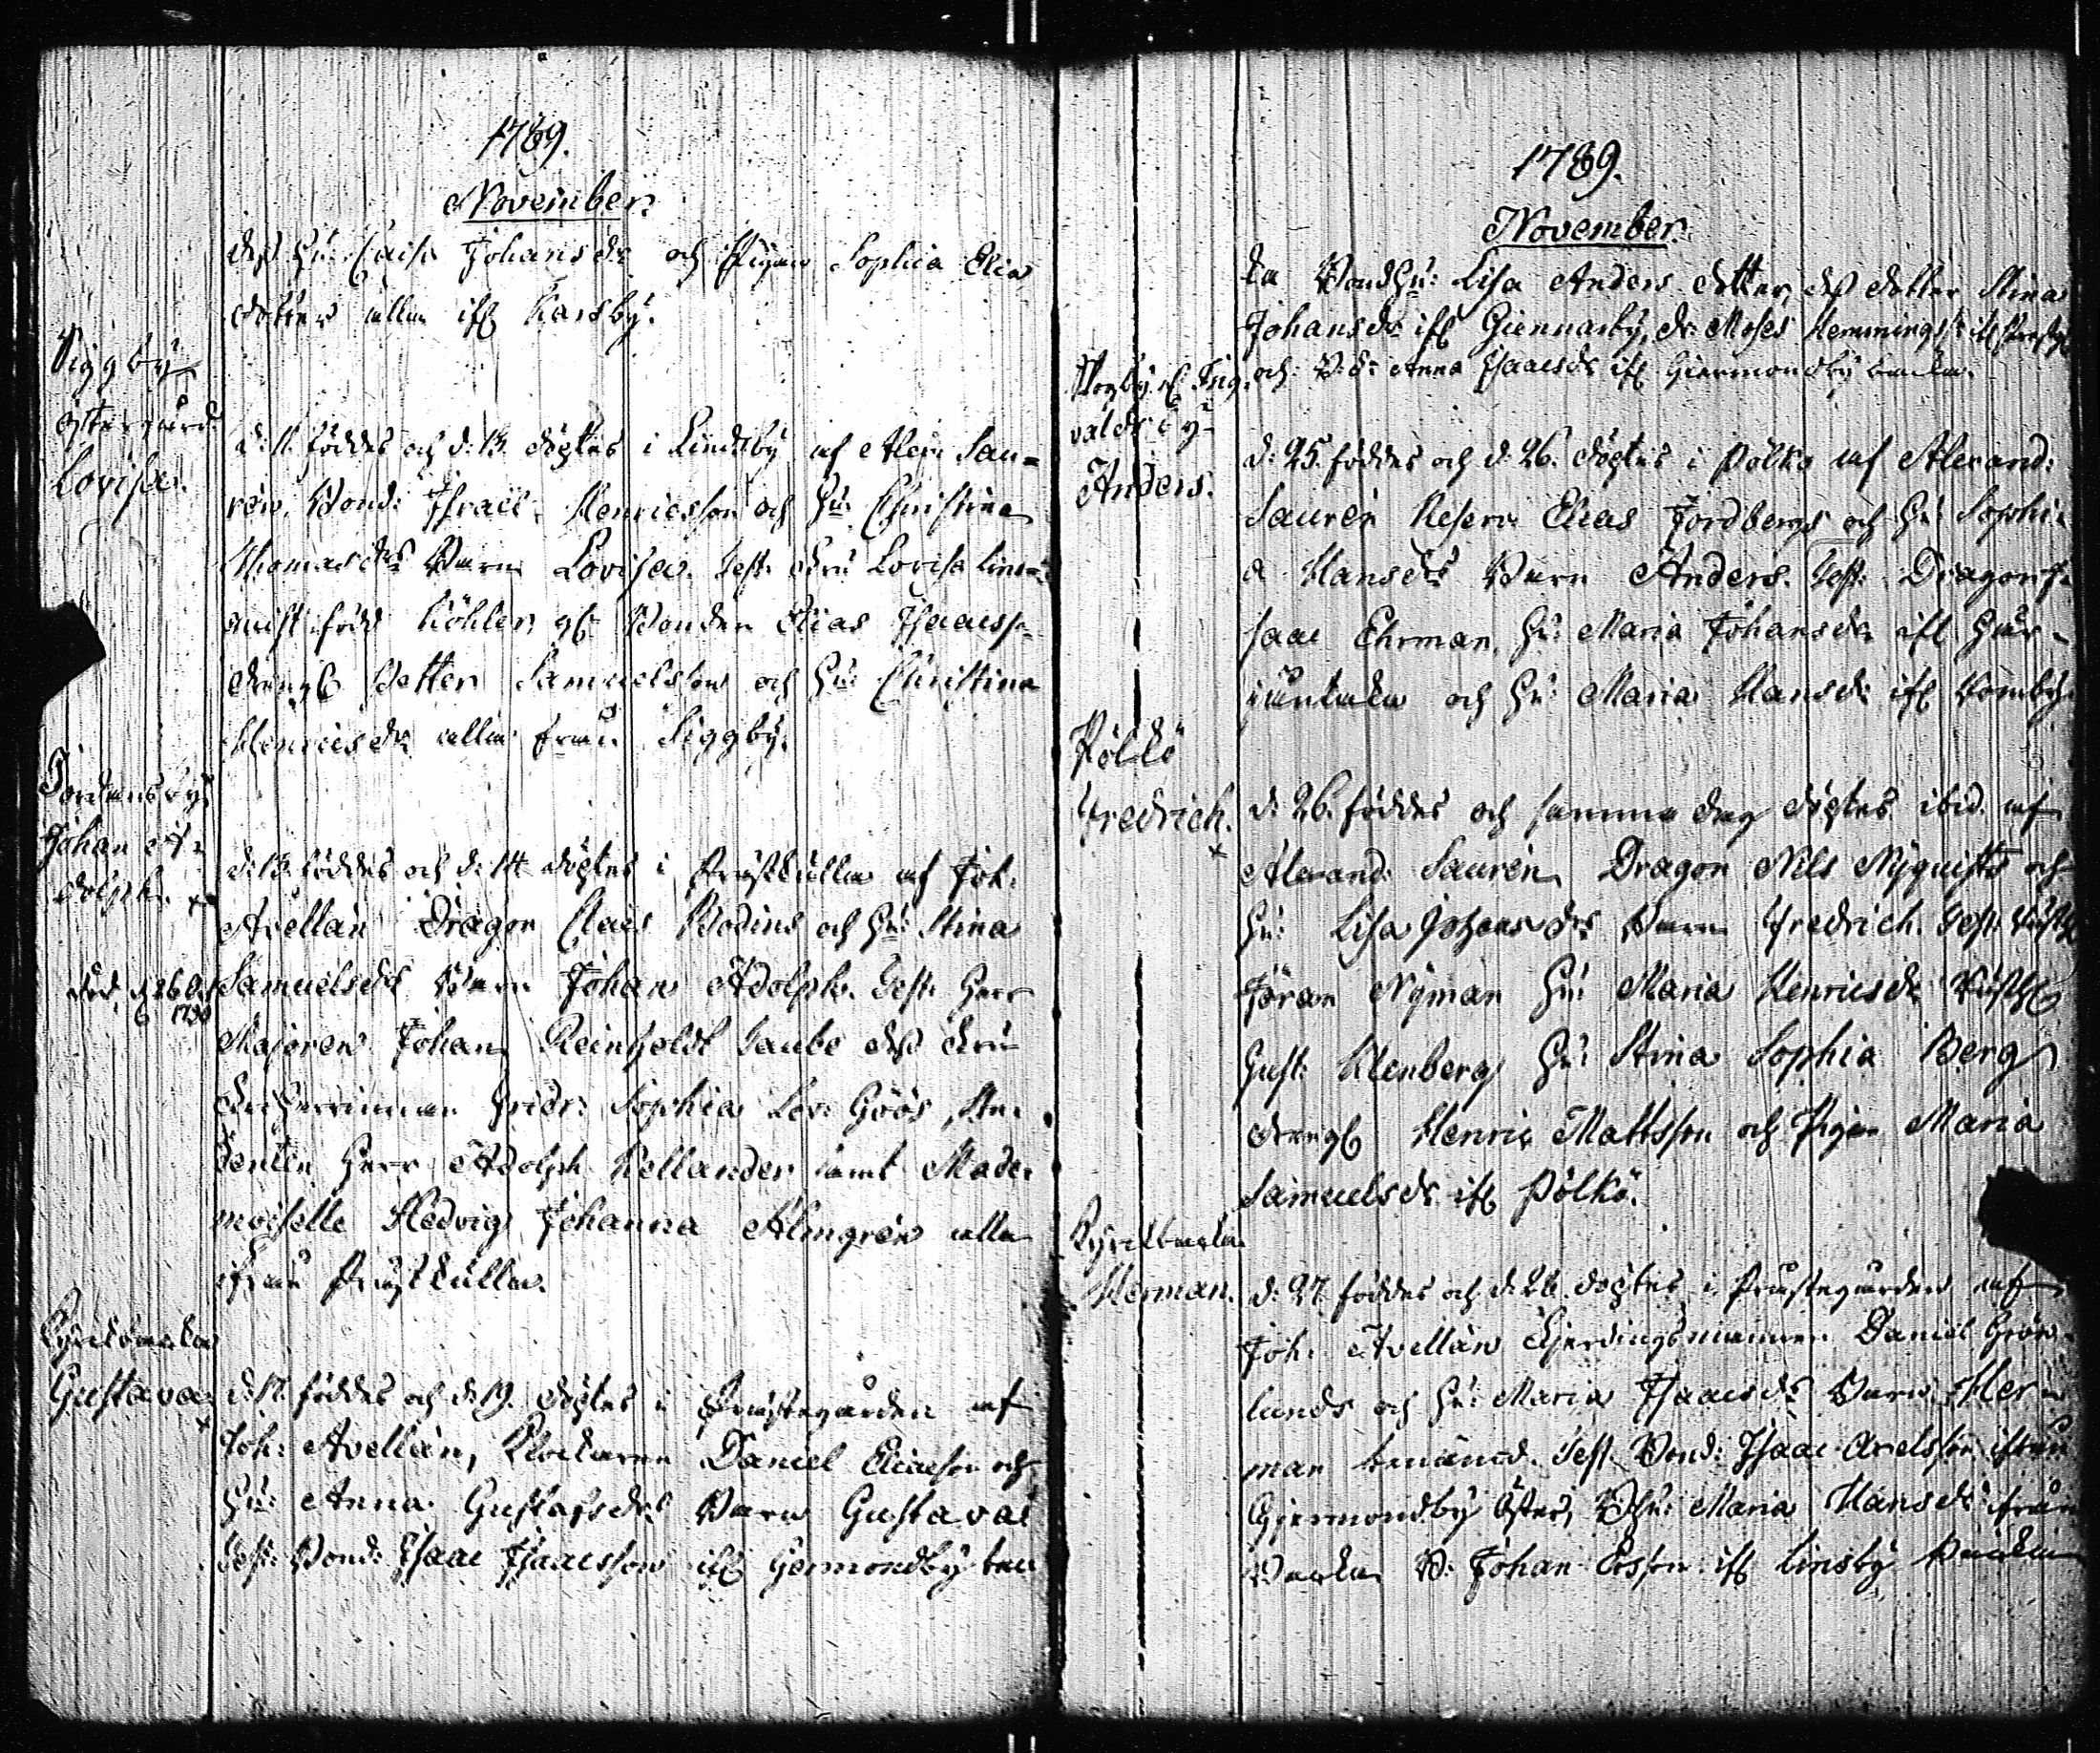 1789.
November.
dess hu: Caisa Johans dr och Pigan Sophia Elias
dotter alla ifr Karsby.
Siggby
östergård
Lovisa.
d: 11. föddes och d: 13. döptes i Lindsby af Alex: Sau=
rén, Bond: Israël Henricsson och hu: Christina
Thomas drs Barn Lovisa. Test: Fru Lovisa
född Köhler, Bonden Elias Isaacss:
dräng Petter Samuelsson och hu: Christina
Henrics dr alla från Siggby.
Jordansby
Johan A=
dolph.
död d 26
1790
d: 13. föddes och d: 14 döptes i Prästkulla af Joh:
Avellan Dragon Claes Bodins och hu: Stina
Samuels drs Barn Johan Adolph. Test: Herr
Majoren Johan Reinholdt Taube dess Fru
Friherrinnan Fridr: Sophia Lov: Göös, Stu=
denten Herr Adolph Kellander samt Made=
moiselle Hedvig Johanna Almgrén alla
ifrån Prästkulla.
Kyrkobacka
Gustava
d: 17. föddes och d: 19. döptes i Prästegården af
Joh: Avellan, Klockaren Daniel Eliaeson och
hu: Anna Gustafs drs Barn Gustava
Test: Bond: Isaac Isaacsson ifr Germondby bac
1789.
November.
ka Bondhu: Lisa Anders dotter, dess dotter Stina
Johans dr ifr Giennarby, dr: Moses Hemmingss:
och B: d: Anna Isaacs dr ifr Giermondby backa.
Ing=
valdsby
Anders.
d: 25. föddes och d: 26. döptes i Pölkö af Alexand:
Saurén Reserv: Elias Jordbergs och hu: Sophi=
a Hans drs Barn Anders. Test: Dragon I=
saac Ehrman, hu: Maria Johans dr ifr
och hu: Maria Hans dr ifr
Pölkö
Fredrich.
d: 26. föddes och samma dag döptes ibid. af
Alexand: Saurén Dragon Nils Nyquists och
hu: Lisa Johans drs Barn Fredrich. Test:
Jöran Nyman hu: Maria Henrics dr
Gust: Klenberg hu: Stina Sophia Berg
dräng Henric Mattsson och Pigan Maria
Samuels dr ifr Pölkö.
Kyrkbacka
Herman.
d: 27. föddes och d: 28. döptes i Prästegården af
Joh: Avellan Fjerdingsmannen Daniel Grön=
lunds och hu: Maria Isaacs drs Barn Her=
man benämnd. Test: Bond: Isaac Axelsson ifrån
Gjermondby Öster, Bhu: Maria Hans dr från
Backa B: Johan Ersson ifr Linsby